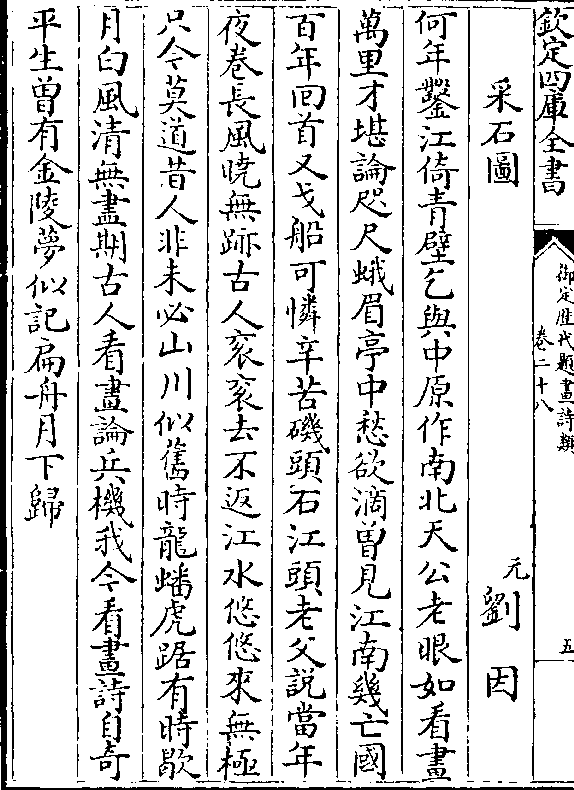 欽定四庫全書
御定歷代題畫詩類
卷二十八
五
采石圖
元劉因
何年鑿江倚青壁乞與中原作南北天公老眼如看畫
萬里才堪論咫尺蛾眉亭中愁欲滴曽見江南幾亡國
百年回首又戈船可憐辛苦磯頭石江頭老父說當年
夜卷長風曉無跡古人衮衮去不返江水悠悠來無極
只今莫道昔人非未必山川似舊時龍蟠虎踞有時歇
月白風清無盡期古人看畫論兵機我今看畫詩自奇
平生曽有金陵夢似記扁舟月下歸